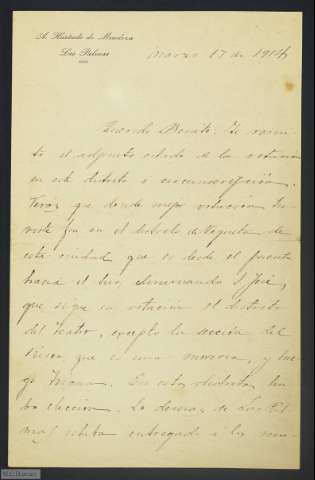 A. Hurtado de Mendoza
Las Palmas
Marzo 17 de 1914
Querido Benito: Te remi-
to el adjunto estado de la votacion
en este distrito o circunscripción.
Verás que donde mejor votacion tu-
viste fue en el distrito de Vegueta de
esta ciudad que es desde el puente
hacia el Sur, eliminando S. José,
que sigue en votación el distrito
del teatro, excepto la sección del
Risco, que es una miseria, y lue-
go Triana. En estos distritos hu-
bo eleccion. Lo demas de Las Pal-
mas estaba entregado a los